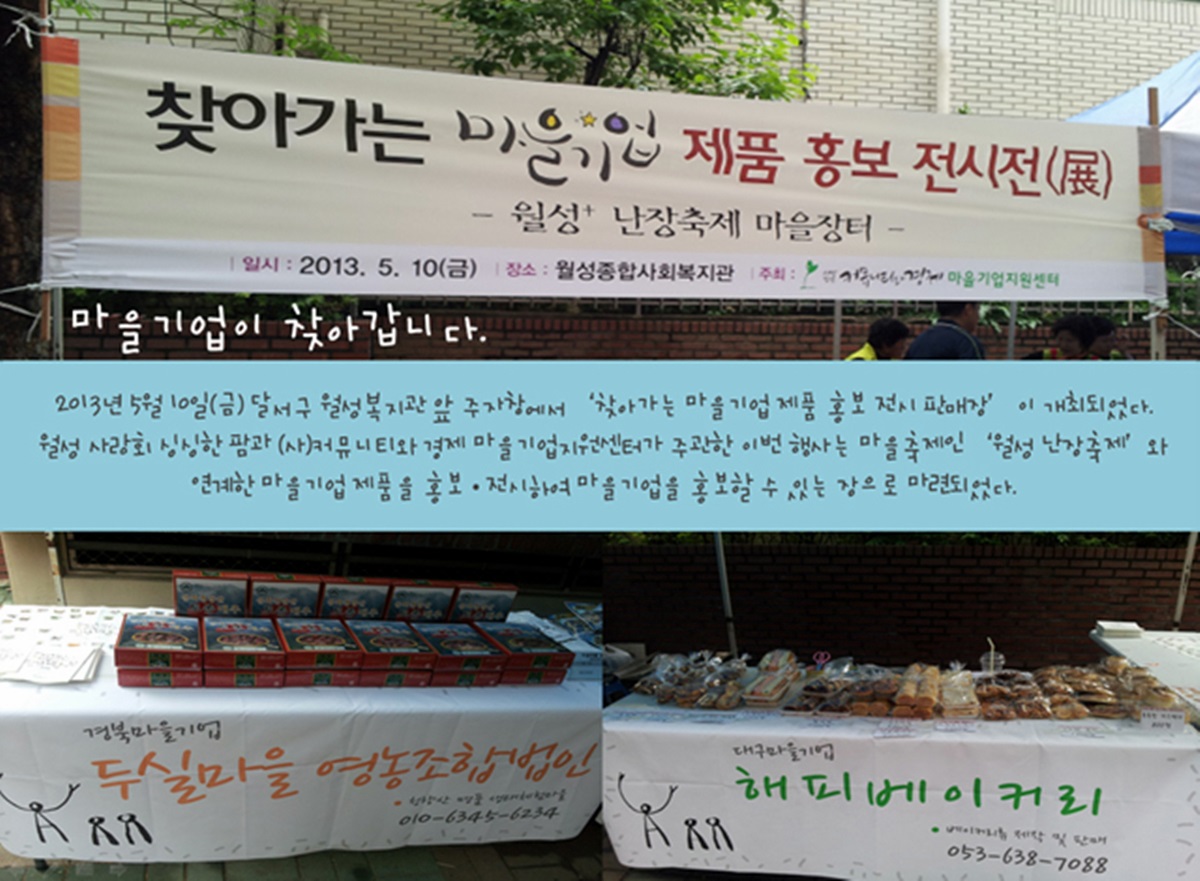 찾아가는 마을기업 제품 홍보 전시전(展)
- 월성+ 난장축제 마을장터 -
일시 : 2013. 5. 10(금) 장소 : 월성종합사회복지관 주최 : 커뮤니티와 경제 마을기업지원센터
마을기업이 찾아갑니다.
2013년 5월 10일(금) 달서구 월성복지관 앞 주차장에서 '찾아가는 마을기업 제품 홍보 전시 판매장' 이 개최되었다.
월성 사랑회 싱싱한 팜과 (사)커뮤니티와 경제 마을기업지원센터가 주관한 이번 행사는 마을축제인 '월성 난장축제' 와
연계한 마을기업 제품을 홍보·전시하여 마을기업을 홍보할 수 있는 장으로 마련되었다.
경북마을기업
두실마을 영농조합법인
010-6345-6234
대구마을기업
해피베이커리
• 베이커리류 제작 및 판매
053-638-7088